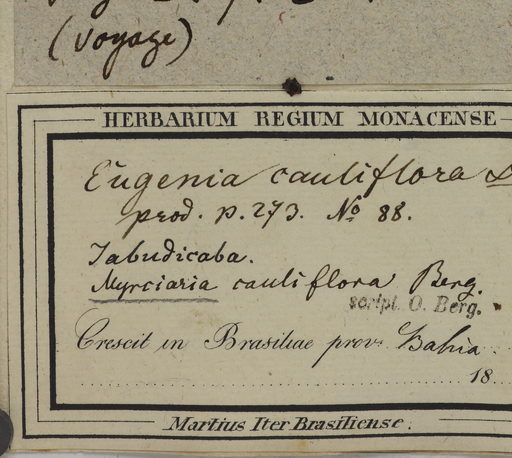 (Voyage)
HERBARIUM REGIUM MONACENSE
Eugenia cauliflora
prod. p. 273. No 88.
Jabudicaba.
Myrciaria cauliflora Berg.
script. O. Berg.
Crescit in Brasiliae prov. Bahia.
18
Martius Iter Brasiliense.